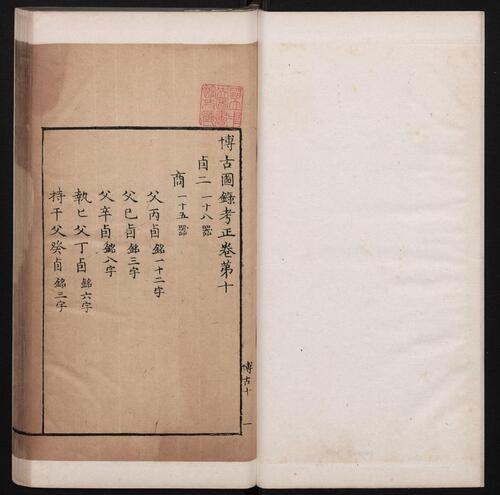 博古圖錄考正卷第十
卣二一十八器
商一十五器
父丙卣銘一十二字
父己卣銘三字
父辛卣銘八字
執匕父丁卣銘六字
持干父癸卣銘三字
博古十
一